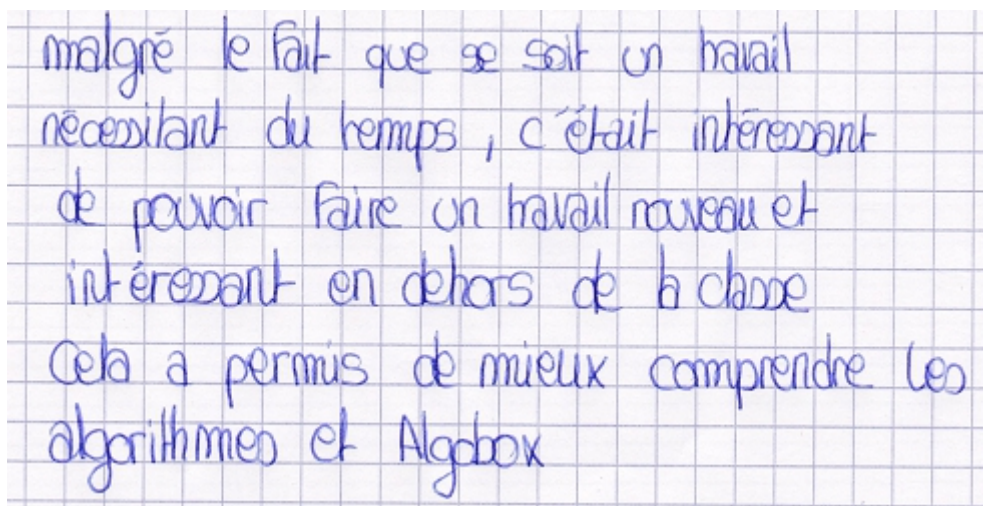 malgré le fait que se soit un travail
nécessitant du temps, c'était intéressant
de pouvoir faire un travail nouveau et
intéressant en dehors de la classe
Cela a permis de mieux comprendre les
algorithmes et Algobox